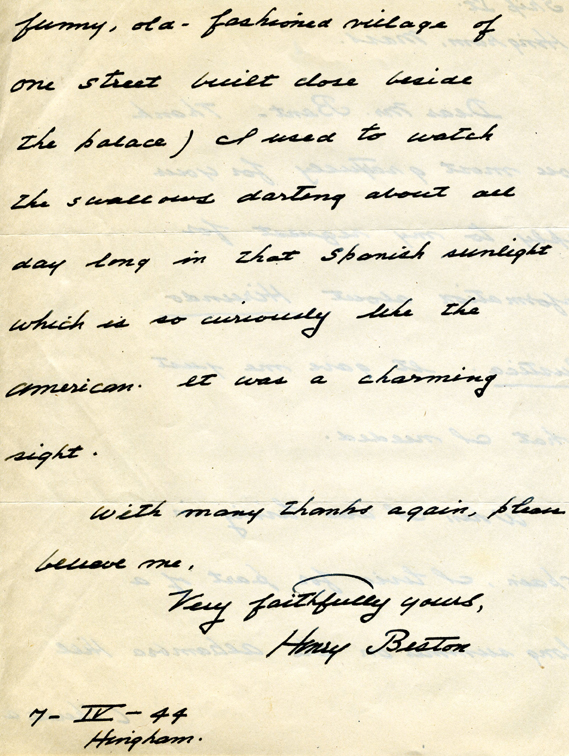 funny, old-fashioned village of
one street built close beside
the palace) I used to watch
the swallows darting about all
day long in that Spanish sunlight
which is so curiously like the
american. It was a charming
sight.
with many thanks again, please
believe me,
Very faithfully yours,
Henry Beston
7-IV-44
Hingham.